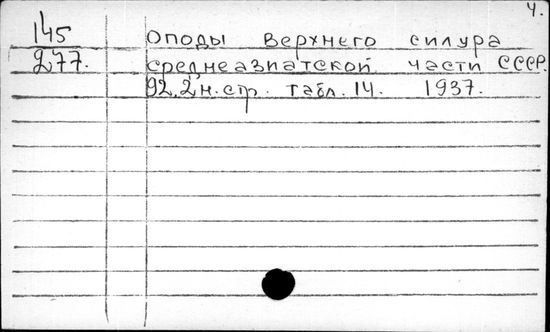 4.
145 оподы верхнего силура
277. среднеазиатской части СССР.
92, 2 н. стр. табл. 14. 1937.